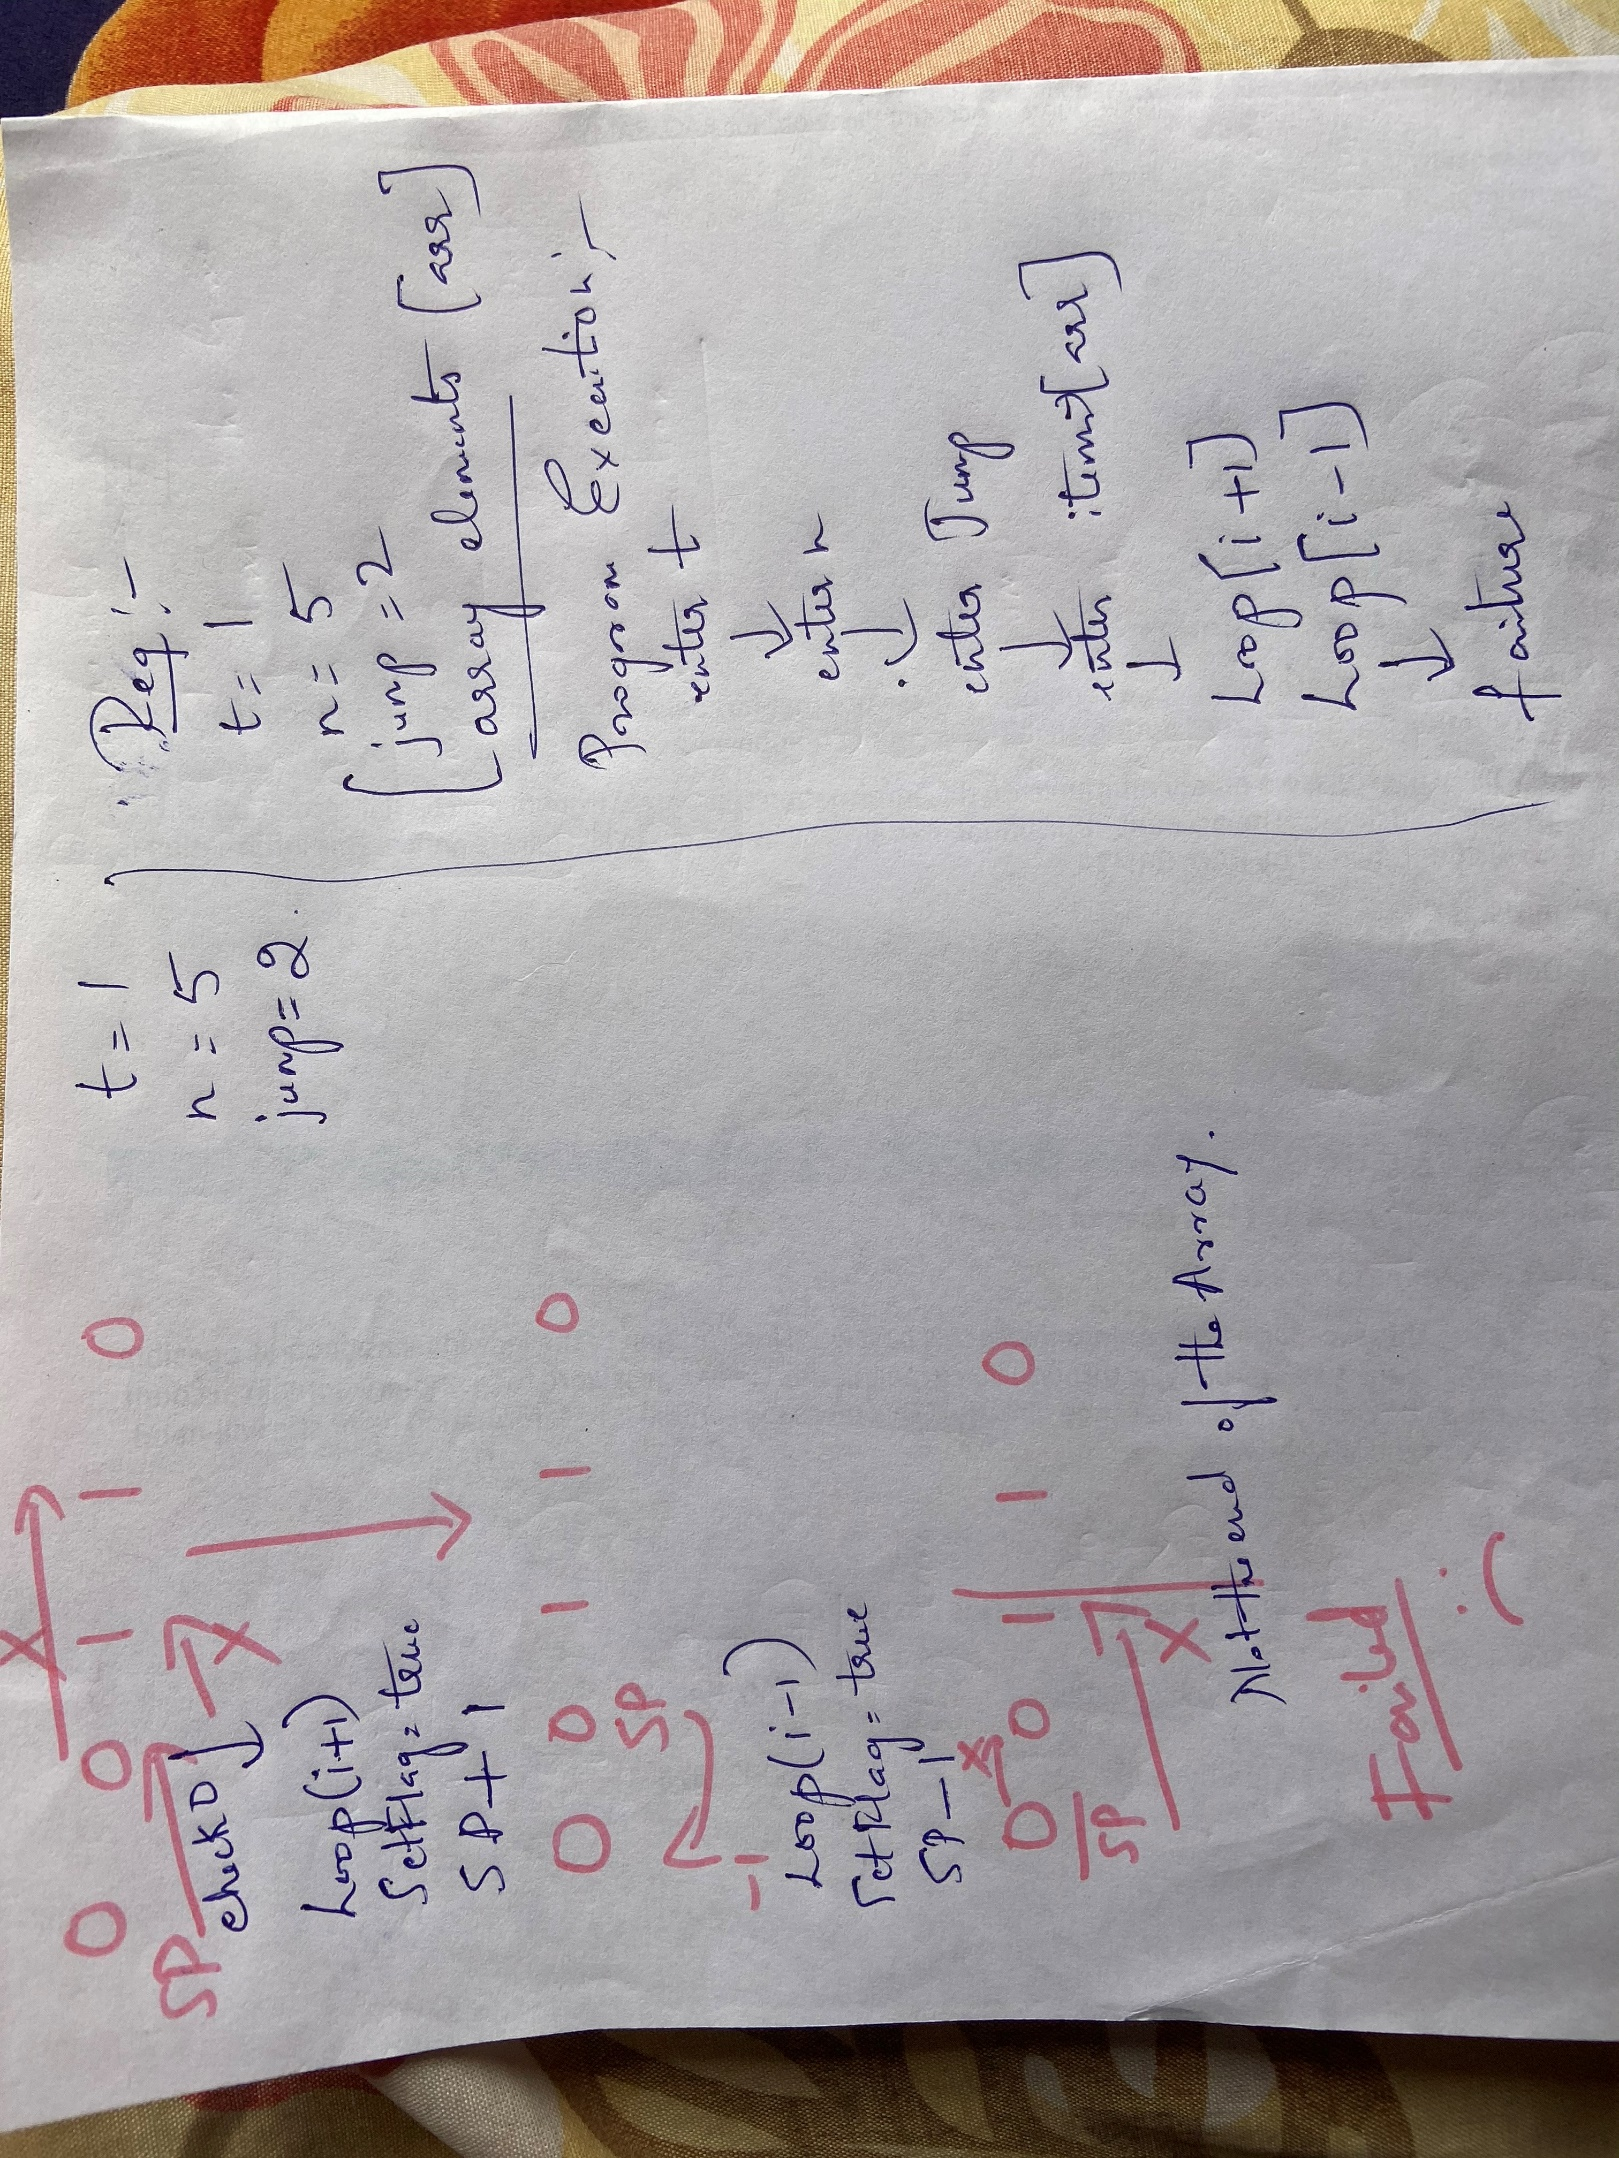 0 0 1 1 0
SP
check 0
Loop(i+1)
Set Flag = true
SP + 1
0 0 1 1 0
SP
-1
Loop(i-1)
Set Flag = true
SP - 1
0 0 1 1 0
SP
Not the end of the Array.
Failed
:(
t = 1
n = 5
jump = 2
Req :-
t = 1
n = 5
jump = 2
array elements [arr]
Program Execution :-
enter t
enter n
enter Jump
enter items [arr]
Loop [i+1]
Loop [i-1]